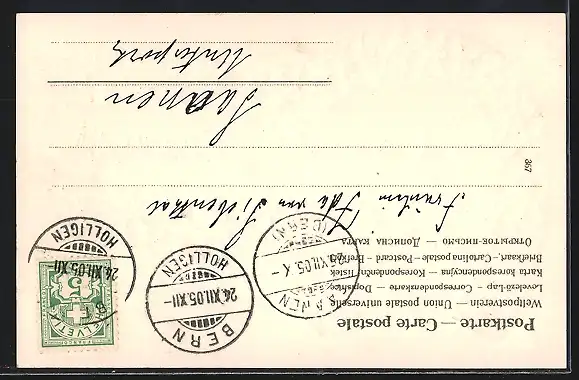 Postkarte — Carte postale
Weltpostverein — Union postale universelle
Levelező-Lap — Correspondenzkarte — Dopisnice
Karta korespondencyjna — Korespondenční lístek
Briefkaart, — Cartolina postale — Postcard — Brefkort
Открытое письмо — Дописна карта
SAANEN
XII.05.X—
(BERN)
BERN
24.XII.05.XII—
HOLLIGEN
BERN
24.XII.05.XII
HOLLIGEN
HELVETIA
5
Fräulein Ida von Siebenthal
367
Saanen
Unterport